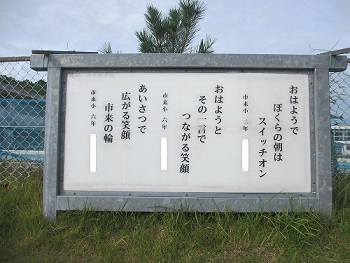 おはようで
ぼくらの朝は
スイッチオン
市来小 六年
おはようと
その一言で
つながる笑顔
市来小 六年
あいさつで
広がる笑顔
市来の輪
市来小 六年